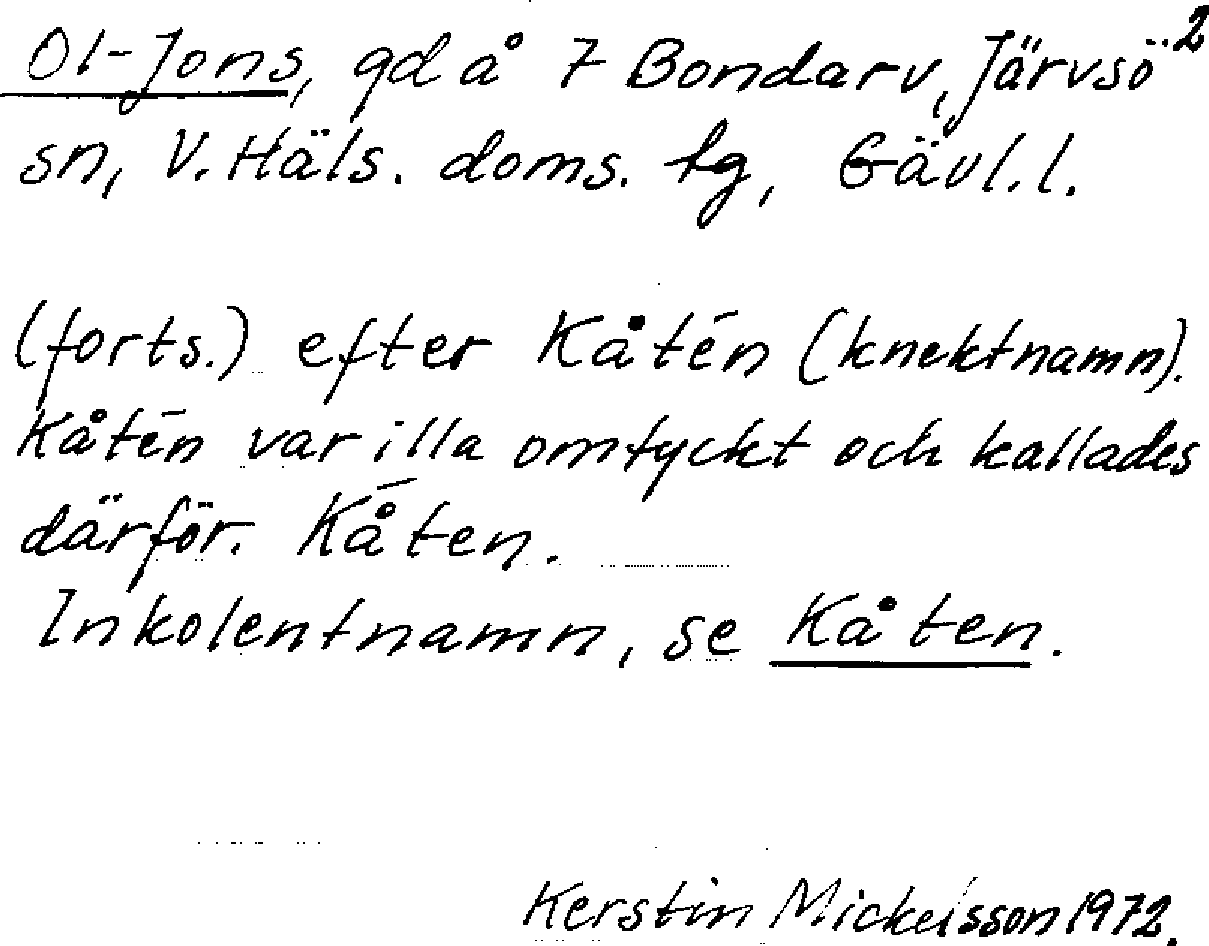 Ol-Jons, gd å 7 Bondarv, Järvsö 2
sn, V. Häls. doms. tg, Gävl. l.
(forts.) efter Kåtén (knektnamn).
Kåtén var illa omtyckt och kallades
därför. Kǻten.
Inkolentnamn, se Kåten.
Kerstin Mickelsson 1972.